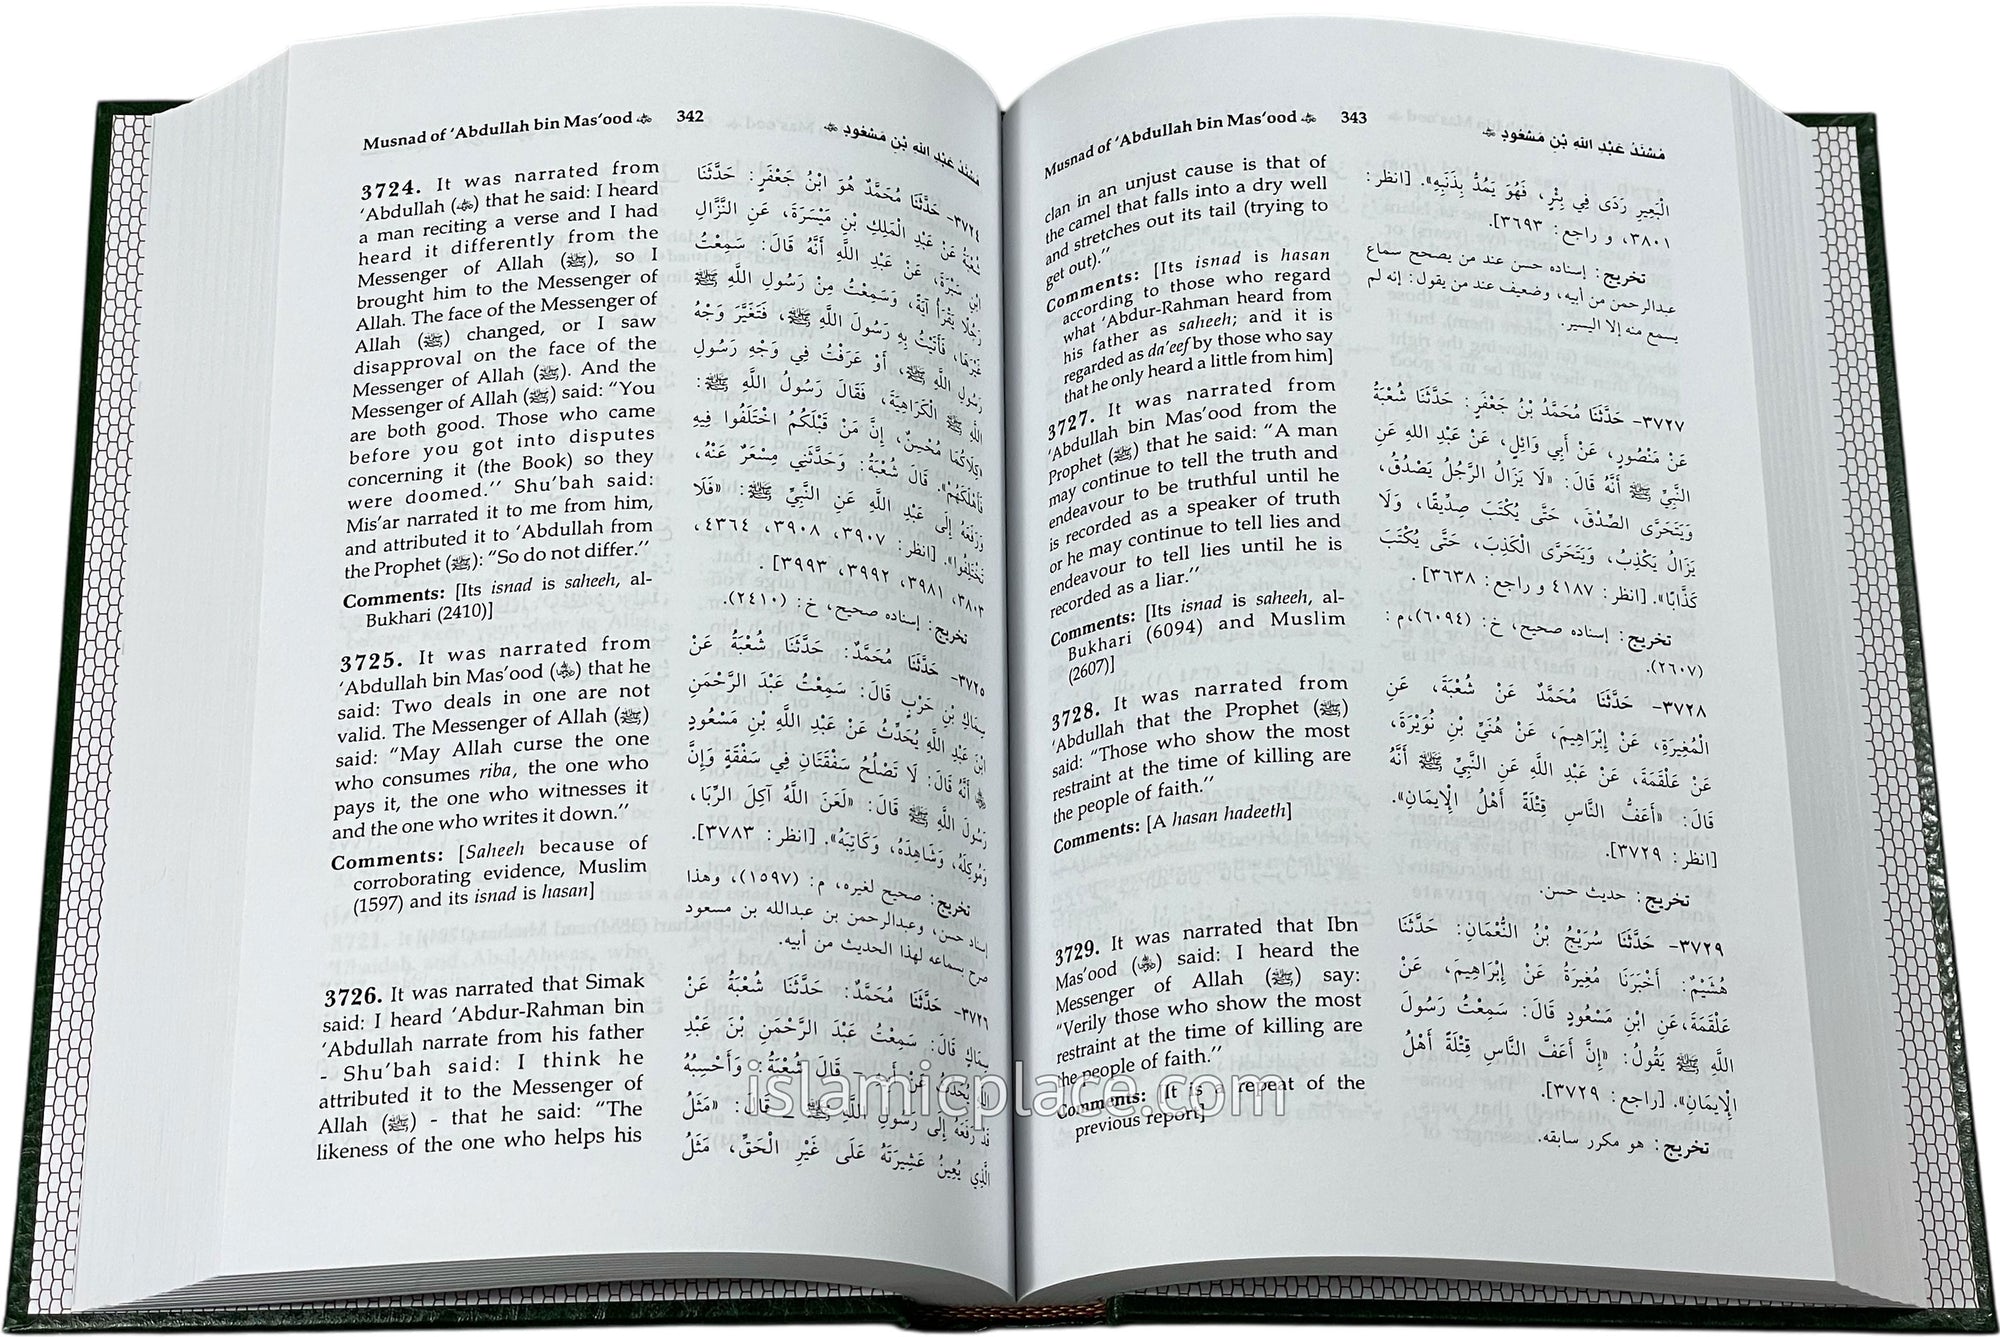 Musnad of ‘Abdullah bin Mas‘ood 342
مُسْنَدُ عَبْدِ اللهِ بْنِ مَسْعُودٍ
3724. It was narrated from
‘Abdullah () that he said: I heard
a man reciting a verse and I had
heard it differently from the
Messenger of Allah (ﷺ), so I
brought him to the Messenger of
Allah. The face of the Messenger of
Allah (ﷺ) changed, or I saw
disapproval on the face of the
Messenger of Allah (ﷺ). And the
Messenger of Allah (ﷺ) said: “You
are both good. Those who came
before you got into disputes
concerning it (the Book) so they
were doomed.’’ Shu’bah said:
Mis’ar narrated it to me from him,
and attributed it to ‘Abdullah from
the Prophet (ﷺ): “So do not differ.’’
Comments: [Its isnad is saheeh, al-
Bukhari (2410)]
3725. It was narrated from
‘Abdullah bin Mas’ood () that he
said: Two deals in one are not
valid. The Messenger of Allah (ﷺ)
said: “May Allah curse the one
who consumes riba, the one who
pays it, the one who witnesses it
and the one who writes it down.’’
Comments: [Saheeh because of
corroborating evidence, Muslim
(1597) and its isnad is hasan]
3726. It was narrated that Simak
said: I heard ‘Abdur-Rahman bin
‘Abdullah narrate from his father
- Shu’bah said: I think he
attributed it to the Messenger of
Allah (ﷺ) - that he said: “The
likeness of the one who helps his
٣٧٢٤- حَدَّثَنَا مُحَمَّدٌ هُوَ ابْنُ جَعْفَرٍ: حَدَّثَنَا
شُعْبَةُ عَنْ عَبْدِ الْمَلِكِ بْنِ مَيْسَرَةَ، عَنِ النَّزَّالِ
ابْنِ سَبْرَةَ، عَنْ عَبْدِ اللَّهِ أَنَّهُ قَالَ: سَمِعْتُ
رَجُلًا يَقْرَأُ آيَةً، وَسَمِعْتُ مِنْ رَسُولِ اللَّهِ ﷺ
غَيْرَهَا، فَأَتَيْتُ بِهِ رَسُولَ اللَّهِ ﷺ، فَتَغَيَّرَ وَجْهُ
رَسُولِ اللَّهِ ﷺ، أَوْ عَرَفْتُ فِي وَجْهِ رَسُولِ
اللَّهِ ﷺ الْكَرَاهِيَةَ، فَقَالَ رَسُولُ اللَّهِ ﷺ:
«كِلَاكُمَا مُحْسِنٌ، إِنَّ مَنْ قَبْلَكُمُ اخْتَلَفُوا فِيهِ
فَأَهْلَكَهُمْ». قَالَ شُعْبَةُ: وَحَدَّثَنِي مِسْعَرٌ عَنْهُ،
وَرَفَعَهُ إِلَى عَبْدِ اللَّهِ عَنِ النَّبِيِّ ﷺ: «فَلَا
تَخْتَلِفُوا». [انظر: ٣٩٠٧، ٣٩٠٨، ٤٣٦٤،
٣٨٠٣، ٣٩٨١، ٣٩٩٢، ٣٩٩٣].
تخريج: إسناده صحيح، خ: (٢٤١٠).
٣٧٢٥- حَدَّثَنَا مُحَمَّدٌ: حَدَّثَنَا شُعْبَةُ عَنْ
سِمَاكِ بْنِ حَرْبٍ قَالَ: سَمِعْتُ عَبْدَ الرَّحْمَنِ
ابْنَ عَبْدِ اللَّهِ يُحَدِّثُ عَنْ عَبْدِ اللَّهِ بْنِ مَسْعُودٍ
أَنَّهُ قَالَ: لَا تَصْلُحُ سَفْقَتَانِ فِي سَفْقَةٍ وَإِنَّ
رَسُولَ اللَّهِ ﷺ قَالَ: «لَعَنَ اللَّهُ آكِلَ الرِّبَا،
وَمُوكِلَهُ، وَشَاهِدَهُ، وَكَاتِبَهُ». [انظر: ٣٧٨٣].
تخريج: صحيح لغيره، م: (١٥٩٧)، وهذا
إسناد حسن، وعبدالرحمن بن عبدالله بن مسعود
صرح بسماعه لهذا الحديث من أبيه.
٣٧٢٦- حَدَّثَنَا مُحَمَّدٌ: حَدَّثَنَا شُعْبَةُ عَنْ
سِمَاكٍ قَالَ: سَمِعْتُ عَبْدَ الرَّحْمَنِ بْنَ عَبْدِ
اللَّهِ يُحَدِّثُ عَنْ أَبِيهِ- قَالَ شُعْبَةُ: وَأَحْسِبُهُ
قَدْ رَفَعَهُ إِلَى رَسُولِ اللَّهِ ﷺ- قَالَ: «مَثَلُ
الَّذِي يُعِينُ عَشِيرَتَهُ عَلَى غَيْرِ الْحَقِّ، مَثَلُ
Musnad of ‘Abdullah bin Mas‘ood 343
مُسْنَدُ عَبْدِ اللهِ بْنِ مَسْعُودٍ
clan in an unjust cause is that of
the camel that falls into a dry well
and stretches out its tail (trying to
get out).’’
Comments: [Its isnad is hasan
according to those who regard
what ‘Abdur-Rahman heard from
his father as saheeh; and it is
regarded as da’eef by those who say
that he only heard a little from him]
3727. It was narrated from
‘Abdullah bin Mas’ood from the
Prophet (ﷺ) that he said: “A man
may continue to tell the truth and
endeavour to be truthful until he
is recorded as a speaker of truth
or he may continue to tell lies and
endeavour to tell lies until he is
recorded as a liar.’’
Comments: [Its isnad is saheeh, al-
Bukhari (6094) and Muslim
(2607)]
3728. It was narrated from
‘Abdullah that the Prophet (ﷺ)
said: “Those who show the most
restraint at the time of killing are
the people of faith.’’
Comments: [A hasan hadeeth]
3729. It was narrated that Ibn
Mas’ood () said: I heard the
Messenger of Allah (ﷺ) say:
“Verily those who show the most
restraint at the time of killing are
the people of faith.’’
Comments: [It is a repeat of the
previous report]
الْبَعِيرِ رَدَى فِي بِئْرٍ، فَهُوَ يَمُدُّ بِذَنَبِهِ». [انظر:
٣٨٠١، و راجع: ٣٦٩٣].
تخريج: إسناده حسن عند من يصحح سماع
عبدالرحمن من أبيه، وضعيف عند من يقول: إنه لم
يسمع منه إلا اليسير.
٣٧٢٧- حَدَّثَنَا مُحَمَّدُ بْنُ جَعْفَرٍ: حَدَّثَنَا شُعْبَةُ
عَنْ مَنْصُورٍ، عَنْ أَبِي وَائِلٍ، عَنْ عَبْدِ اللهِ عَنِ
النَّبِيِّ ﷺ أَنَّهُ قَالَ: «لَا يَزَالُ الرَّجُلُ يَصْدُقُ،
وَيَتَحَرَّى الصِّدْقَ، حَتَّى يُكْتَبَ صِدِّيقًا، وَلَا
يَزَالُ يَكْذِبُ، وَيَتَحَرَّى الْكَذِبَ، حَتَّى يُكْتَبَ
كَذَّابًا». [انظر: ٤١٨٧ و راجع: ٣٦٣٨].
تخريج: إسناده صحيح، خ: (٦٠٩٤)،م:
(٢٦٠٧).
٣٧٢٨- حَدَّثَنَا مُحَمَّدٌ عَنْ شُعْبَةَ، عَنِ
الْمُغِيرَةِ، عَنْ إِبْرَاهِيمَ، عَنْ هُنَيِّ بْنِ نُوَيْرَةَ،
عَنْ عَلْقَمَةَ، عَنْ عَبْدِ اللَّهِ عَنِ النَّبِيِّ ﷺ أَنَّهُ
قَالَ: «أَعَفُّ النَّاسِ قِتْلَةً أَهْلُ الْإِيمَانِ».
[انظر: ٣٧٢٩].
تخريج: حديث حسن.
٣٧٢٩- حَدَّثَنَا سُرَيْجُ بْنُ النُّعْمَانِ: حَدَّثَنَا
هُشَيْمٌ: أَخْبَرَنَا مُغِيرَةُ عَنْ إِبْرَاهِيمَ، عَنْ
عَلْقَمَةَ،عَنِ ابْنِ مَسْعُودٍ قَالَ: سَمِعْتُ رَسُولَ
اللَّهِ ﷺ يَقُولُ: «إِنَّ أَعَفَّ النَّاسِ قِتْلَةً أَهْلُ
الْإِيمَانِ». [راجع: ٣٧٢٩].
تخريج: هو مكرر سابقه.
islamicplace.com